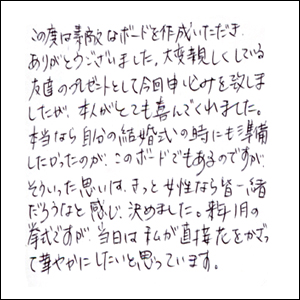 この度は素敵なボードを作成いただき
ありがとうございました。大変親しくしている
友達のプレゼントとして今回申し込みを致しま
したが、本人がとても喜んでくれました。
本当なら自分の結婚式の時にも準備
したかったのが、このボードでもあるのですが、
そういった思いは、きっと女性なら皆一緒
だろうなと感じ、決めました。来年1月の
挙式ですが、当日は私が直接花をかざっ
て華やかにしたいと思っています。